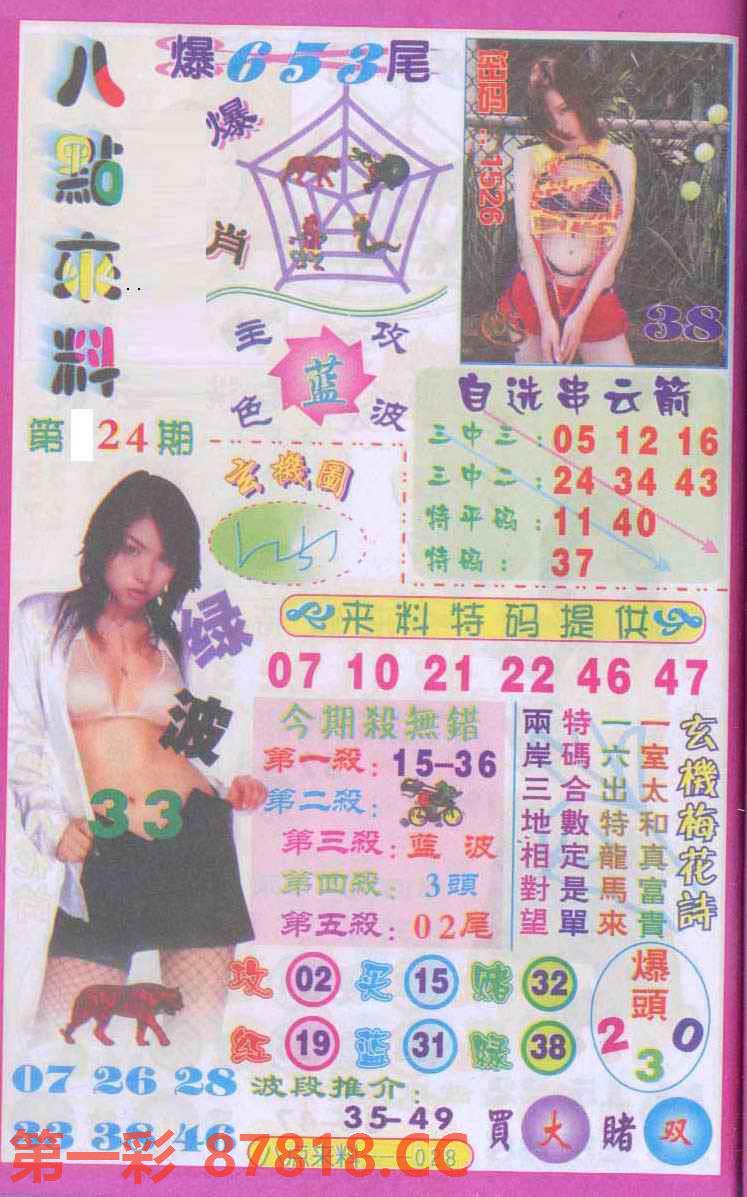 八點來料
爆653尾
爆肖
特码:1526
38
主攻
蓝
色波
自选串云箭
第24期
三中三:05 12 16
三中二:24 34 43
特平码:11 40
特码:37
玄機圖
来料特码提供
07 10 21 22 46 47
绿波
33
今期殺無錯
第一殺:15-36
第二殺:
第三殺:蓝波
第四殺:3頭
第五殺:02尾
玄機梅花詩
一室太和真富貴
一六出特龍馬來
特碼合數定是單
兩岸三地相對望
攻 02 买 15 赌 32
红 19 蓝 31 绿 38
爆頭
2 3 0
07 26 28
33 38 46
波段推介:
35-49
買大賭双
第一彩 87818.CC
来料
028